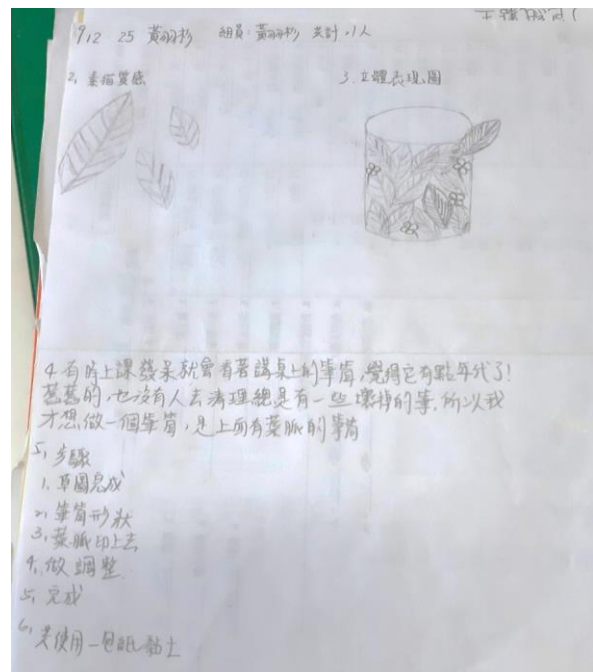 912 25 黃羽杉 組員:黃羽杉 共計:1人
2. 素描質感
3. 立體表現圖
4. 有時上課發呆就會看著講桌上的筆筒,覺得它有點年代了!
舊舊的,也沒有人去清理總是有一些壞掉的筆,所以我
才想做一個筆筒,是上面有葉脈的筆筒
5. 步驟
1. 草圖完成
2. 筆筒形狀
3. 葉脈印上去
4. 做調整
5. 完成
6. 共使用一包紙黏土